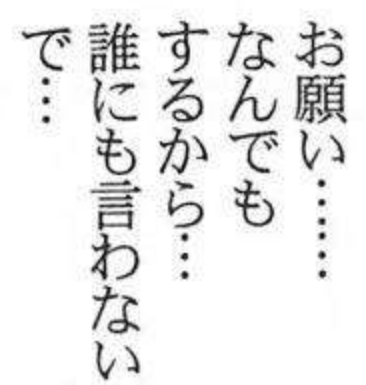 お願い……
なんでも
するから…
誰にも言わない
で…